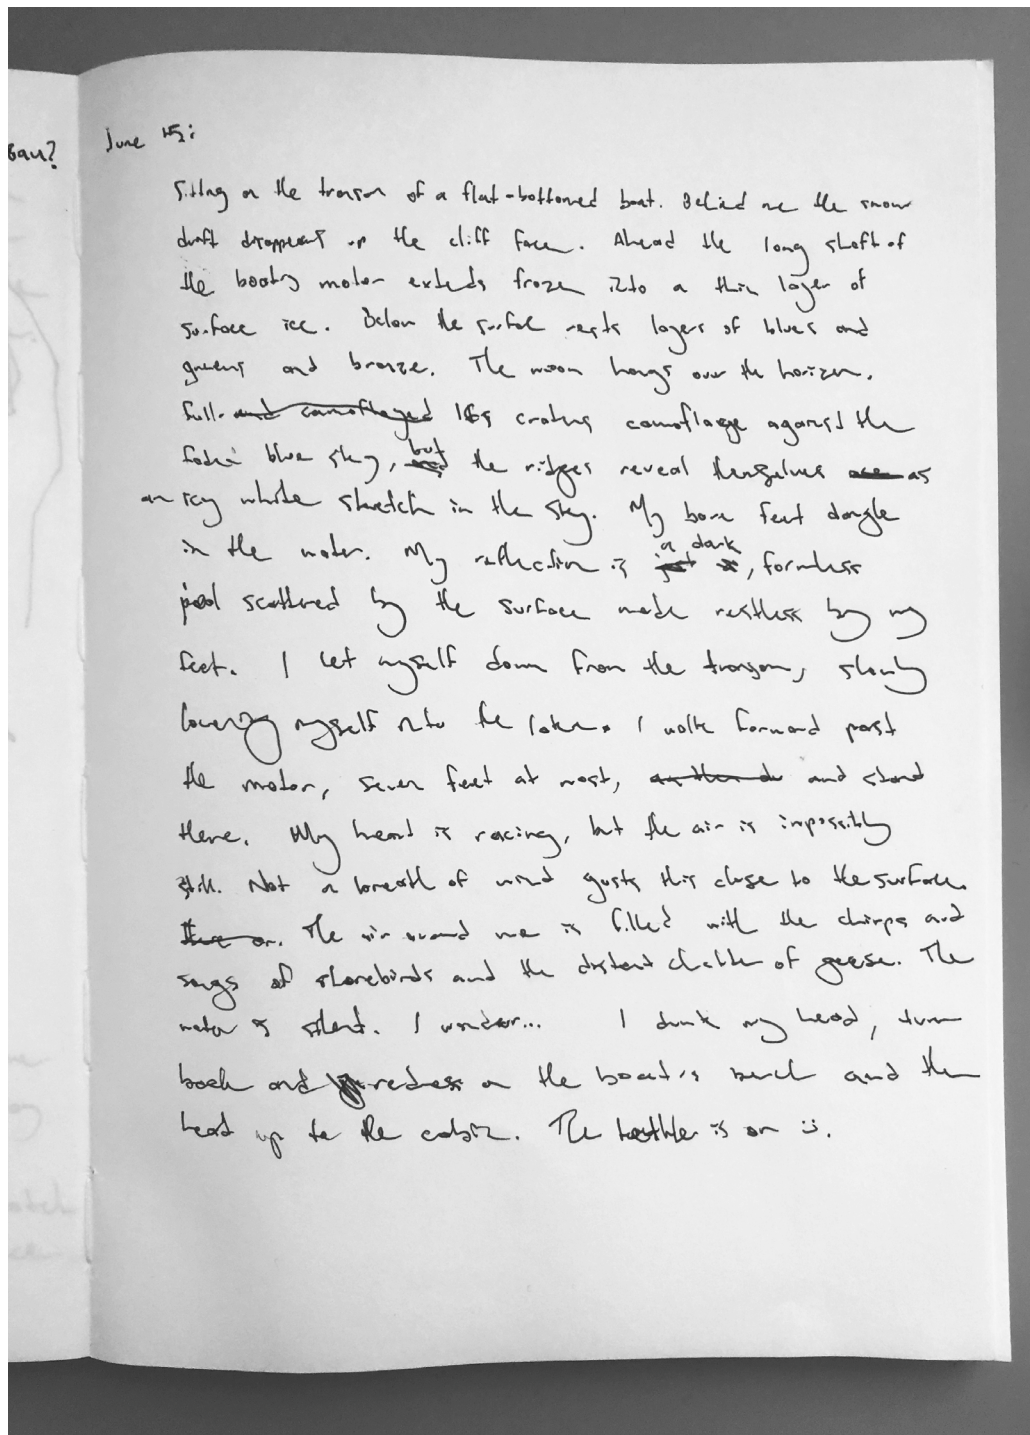 June 15:
Sitting on the transom of a flat-bottomed boat. Behind me the snow
drift disappears up the cliff face. Ahead the long shaft of
the boat's motor extends frozen into a thin layer of
surface ice. Below the surface rests layers of blues and
greens and bronze. The moon hangs over the horizon,
full. and camoflaged Its craters camoflage against the
faded blue sky, but the ridges reveal themselves as
an icy white sketch in the sky. My bare feet dangle
in the water. My reflection is a dark, formless
pool scattered by the surface made restless by my
feet. I let myself down from the transom, slowly
lowering myself into the water. I walk forward past
the motor, seven feet at most, and stand
there. My heart is racing, but the air is impossibly
still. Not a breath of wind gusts this close to the surface.
The air around me is filled with the chirps and
songs of shorebirds and the distant chatter of geese. The
water is silent. I wonder... I dunk my head, turn
back and redress on the boat's bench and then
head up to the cabin. The kettle is on :).